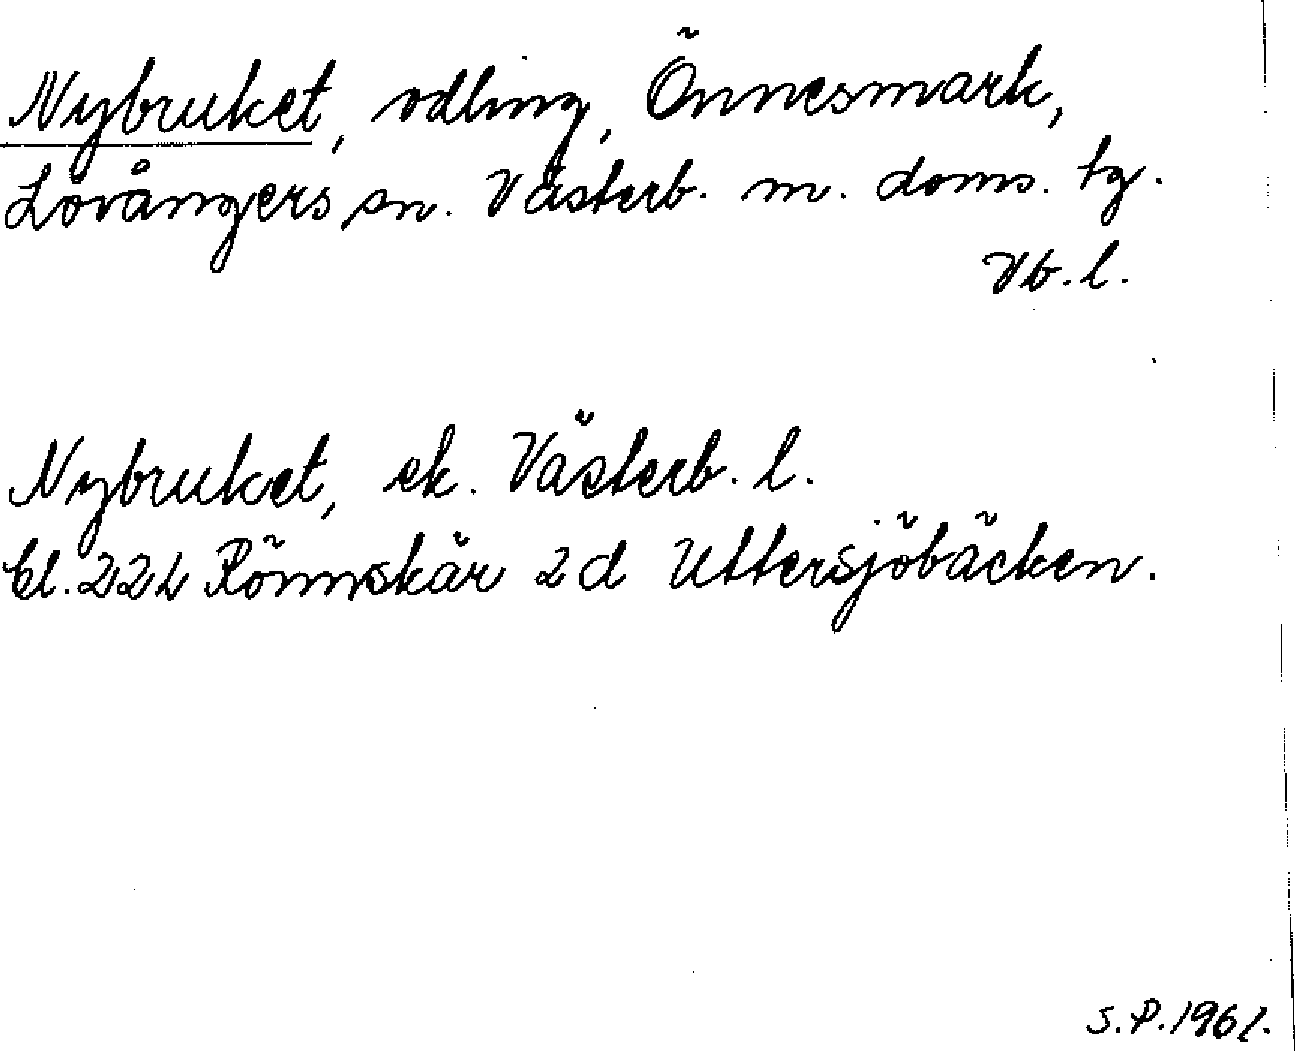 Nybruket, odling, Önnesmark,
Lövångers sn. Västerb. m. doms. tg.
Vb. l.
Nybruket, ek. Västerb. l.
bl. 22L Rönnskär 2d Uttersjöbäcken.
S.P. 1961.